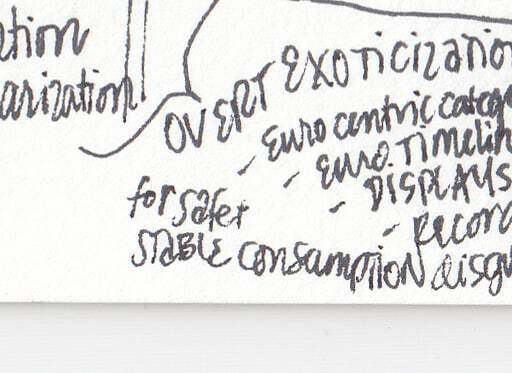 ation
arization
OVERT EXOTICIZATION
- Eurocentric catego
- Euro. Timelin
- DISPLAYS
- Record
for safer
STABLE consumption disgu